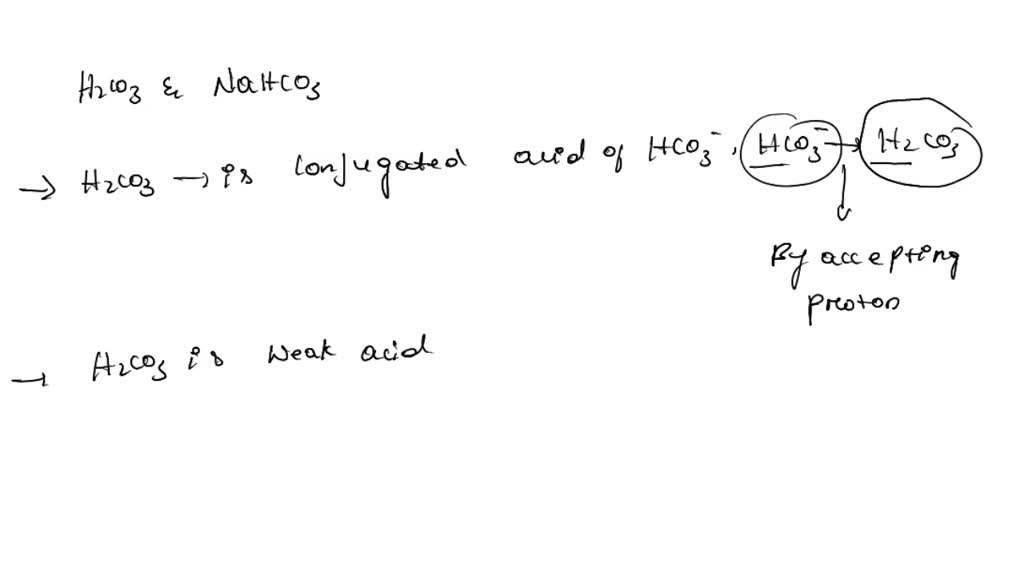 H₂CO₃ & NaHCO₃
→ H₂CO₃ → is conjugated acid of HCO₃⁻, HCO₃⁻ → H₂CO₃
By accepting
proton
→ H₂CO₃ is weak acid